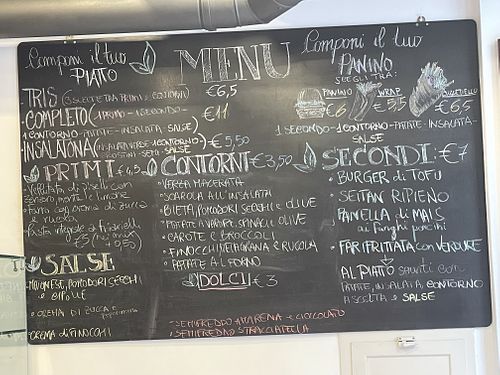 Componi il tuo
PIATTO
MENU
Componi il tuo
PANINO
SCEGLI TRA:
TRIS (3 SCELTE TRA PRIMI E CONTORNI) €6,5
COMPLETO (1 PRIMO - 1 SECONDO - €11
1 CONTORNO - PATATE - INSALATA - SALSE)
INSALATONA €5,50
SALSE
PANINO €6
WRAP €5,5
€6,5
1 SECONDO - 1 CONTORNO - PATATE - INSALATA -
SALSE
PRIMI €4,5
Vellutata di piselli con
zenzero, menta e limone
zucca
Pasta integrale
€5
CONTORNI €3,50
VERZA MACERATA
SCAROLA ALL'INSALATA
BIETA, POMODORI SECCHI E OLIVE
PATATE A VAPORE, SPINACI E OLIVE
CAROTE E BROCCOLI
FINOCCHI, MELAGRANA E RUCOLA
PATATE AL FORNO
DOLCI €3
SEMIFREDDO AMARENA E CIOCCOLATO
SEMIFREDDO STRACCIATELLA
SECONDI €7
BURGER di TOFU
SEITAN RIPIENO
PANELLA di MAIS
ai funghi porcini
FARIFRITTATA con VERDURE
AL PIATTO serviti con
PATATE, INSALATA, CONTORNO
A SCELTA e SALSE
SALSE
MAIONESE, POMODORI SECCHI
e CIPOLLE
CREMA DI ZUCCA E
CREMA di FINOCCHI